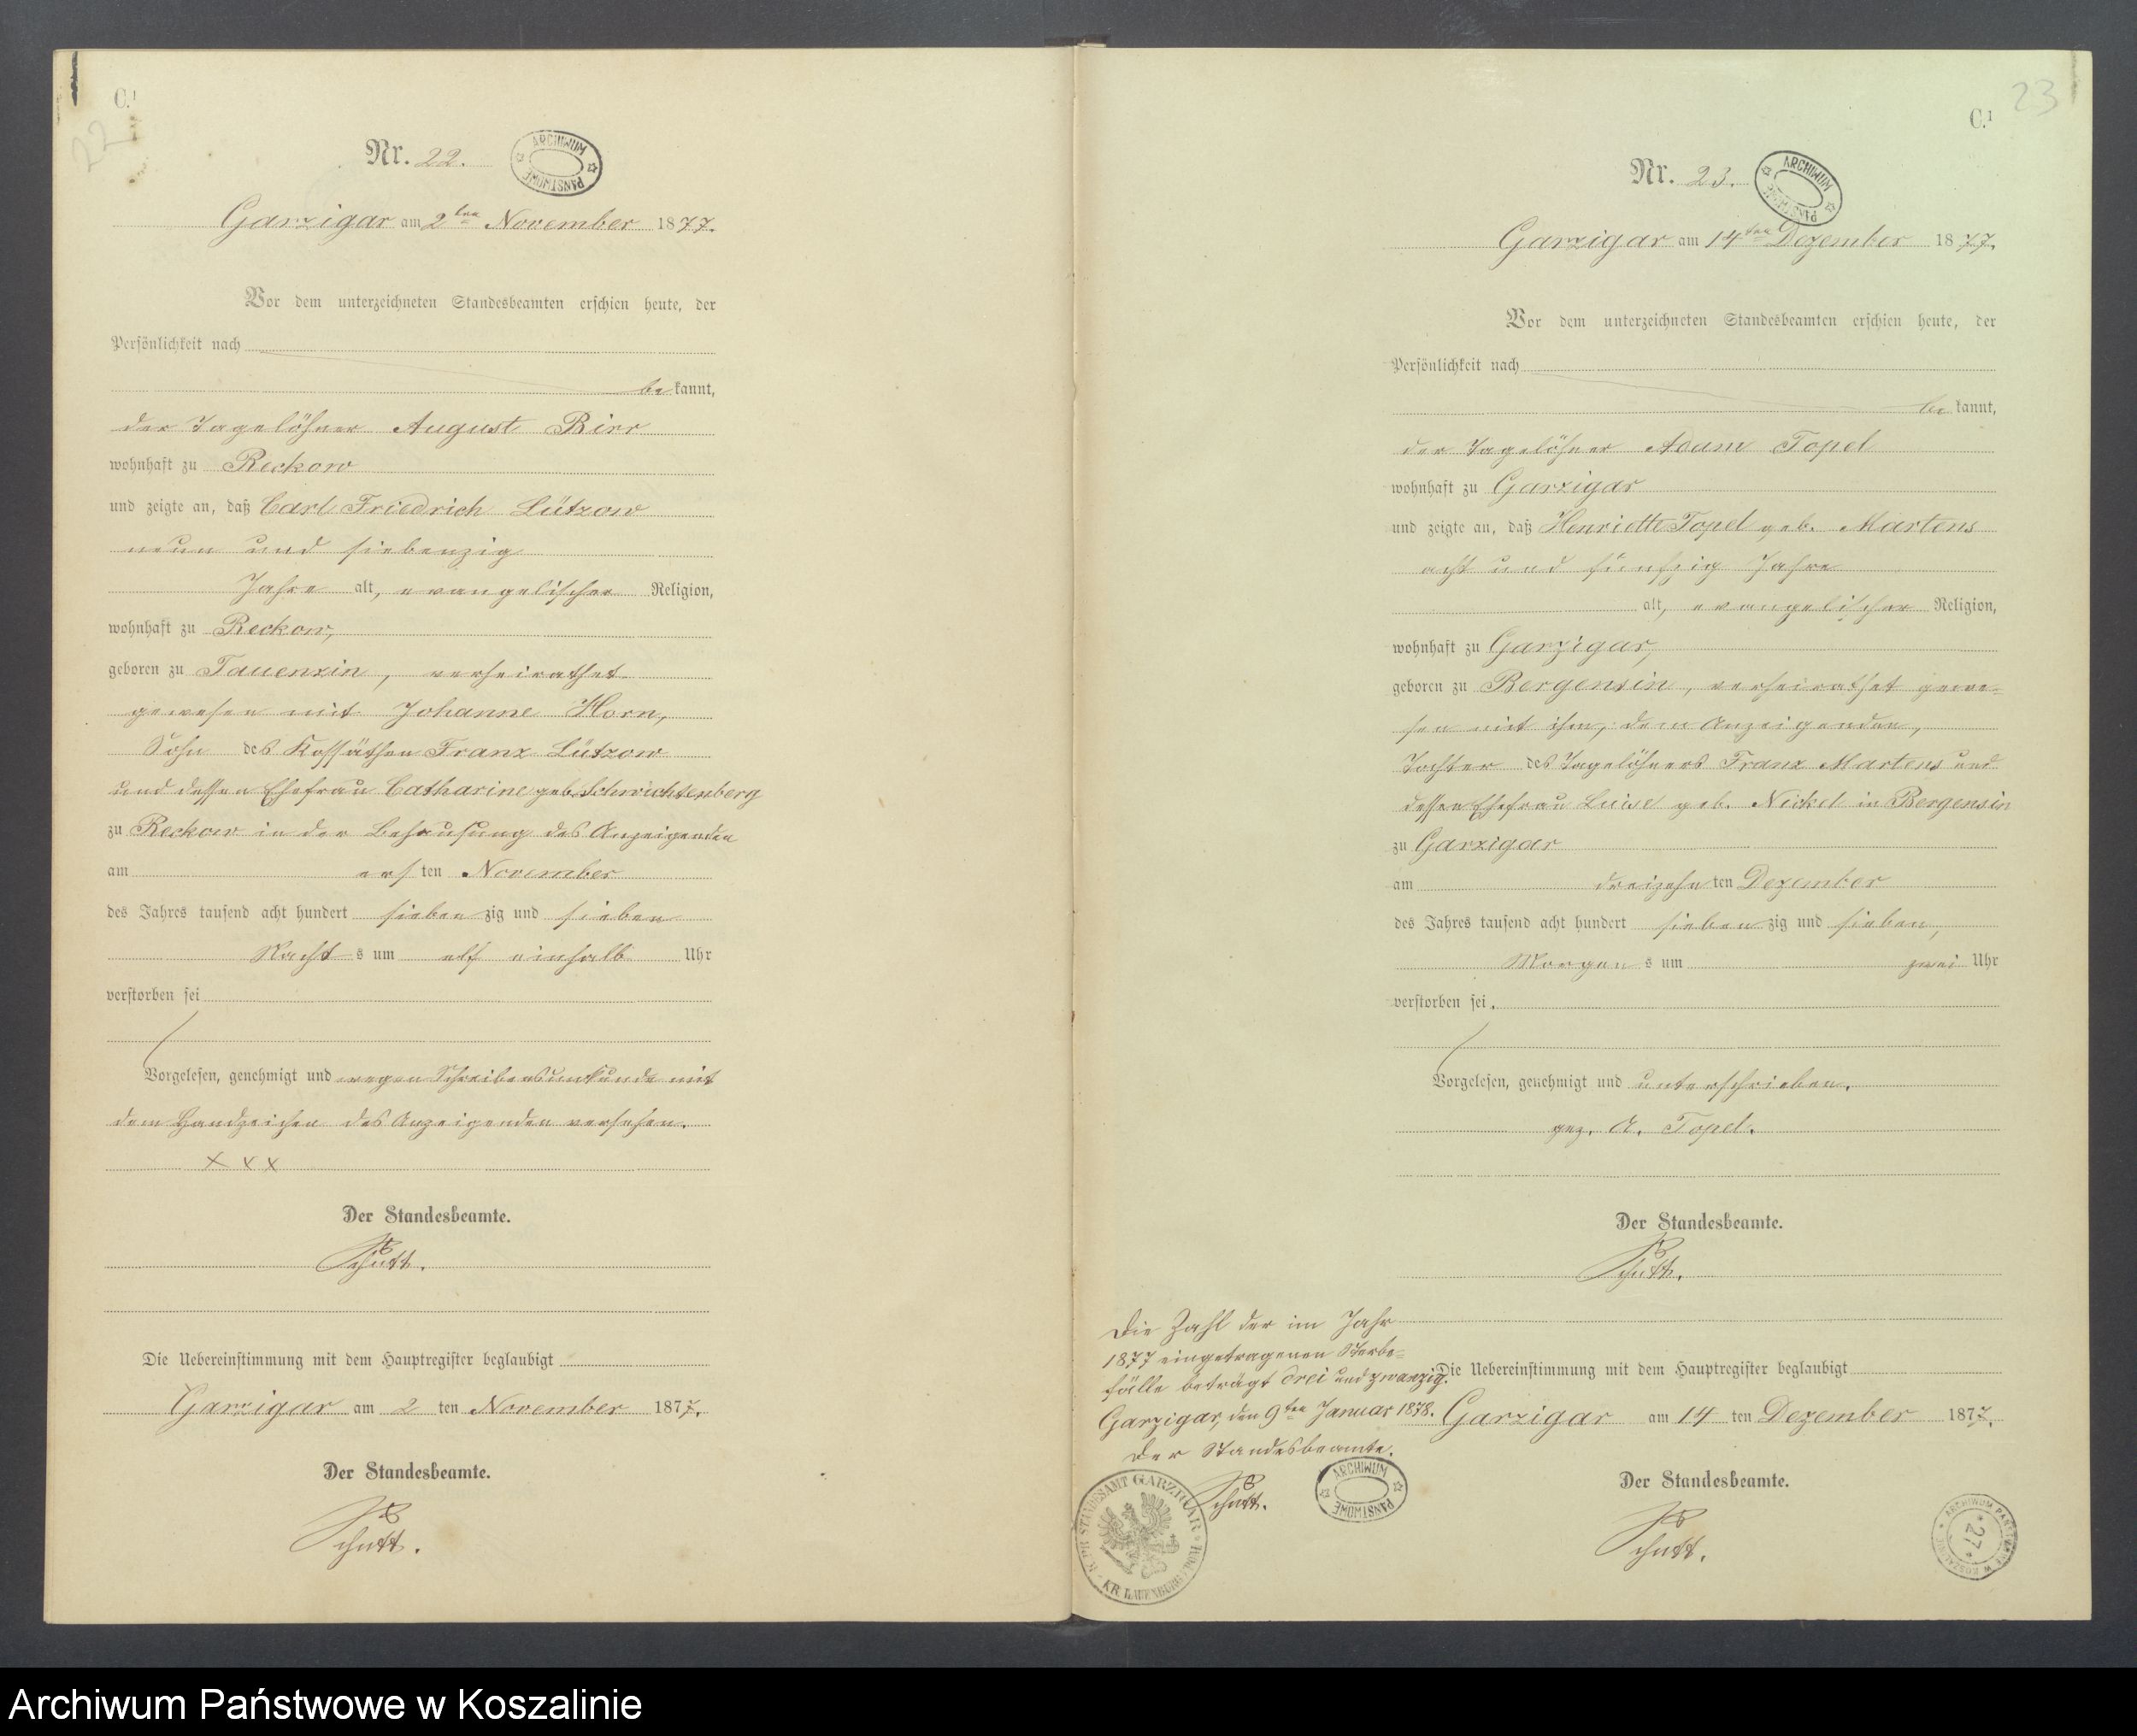 C.1
22
Nr. 22.
ARCHIWUM PAŃSTWOWE
Garzigar am 2ten November 1877.
Vor dem unterzeichneten Standesbeamten erschien heute, der
Persönlichkeit nach
bekannt,
der Tagelöhner August Birr
wohnhaft zu Reckow
und zeigte an, daß Carl Friedrich Lützow
neun und siebenzig
Jahre alt, evangelischer Religion,
wohnhaft zu Reckow,
geboren zu Tauenzin, verheirathet
gewesen mit Johanne Horn,
Sohn des Kossäthen Franz Lützow
und dessen Ehefrau Catharine geb. Schwichtenberg
zu Reckow in der Behausung des Anzeigenden
am ersten November
des Jahres tausend acht hundert siebenzig und sieben
Nachts um elf einhalb Uhr
verstorben sei
Vorgelesen, genehmigt und wegen Schreibensunkunde mit
dem Handzeichen des Anzeigenden versehen.
x x x
Der Standesbeamte.
Schutt.
Die Uebereinstimmung mit dem Hauptregister beglaubigt
Garzigar am 2ten November 1877.
Der Standesbeamte.
Schutt.
23
C.1
Nr. 23.
ARCHIWUM PAŃSTWOWE
Garzigar am 14ten Dezember 1877.
Vor dem unterzeichneten Standesbeamten erschien heute, der
Persönlichkeit nach
bekannt,
der Tagelöhner Adam Topel
wohnhaft zu Garzigar
und zeigte an, daß Henriette Topel geb. Martens
acht und fünfzig Jahre
alt, evangelischer Religion,
wohnhaft zu Garzigar,
geboren zu Bergensin, verheirathet gewe-
sen mit ihm, dem Anzeigenden,
Tochter des Tagelöhners Franz Martens und
dessen Ehefrau Luise geb. Nickel in Bergensin
zu Garzigar
am dreizehnten Dezember
des Jahres tausend acht hundert siebenzig und sieben,
Morgens um zwei Uhr
verstorben sei.
Vorgelesen, genehmigt und unterschrieben.
gez. A. Topel.
Der Standesbeamte.
Schutt.
Die Zahl der im Jahr
1877 eingetragenen Sterbe-
fälle beträgt drei und zwanzig.
Garzigar, den 9ten Januar 1878.
Der Standesbeamte.
Schutt.
K. PR. STANDESAMT GARZIGAR KR. LAUENBURG
ARCHIWUM PAŃSTWOWE
Die Uebereinstimmung mit dem Hauptregister beglaubigt
Garzigar am 14ten Dezember 1877.
Der Standesbeamte.
Schutt.
ARCHIWUM PAŃSTWOWE W KOSZALINIE
27
Archiwum Państwowe w Koszalinie